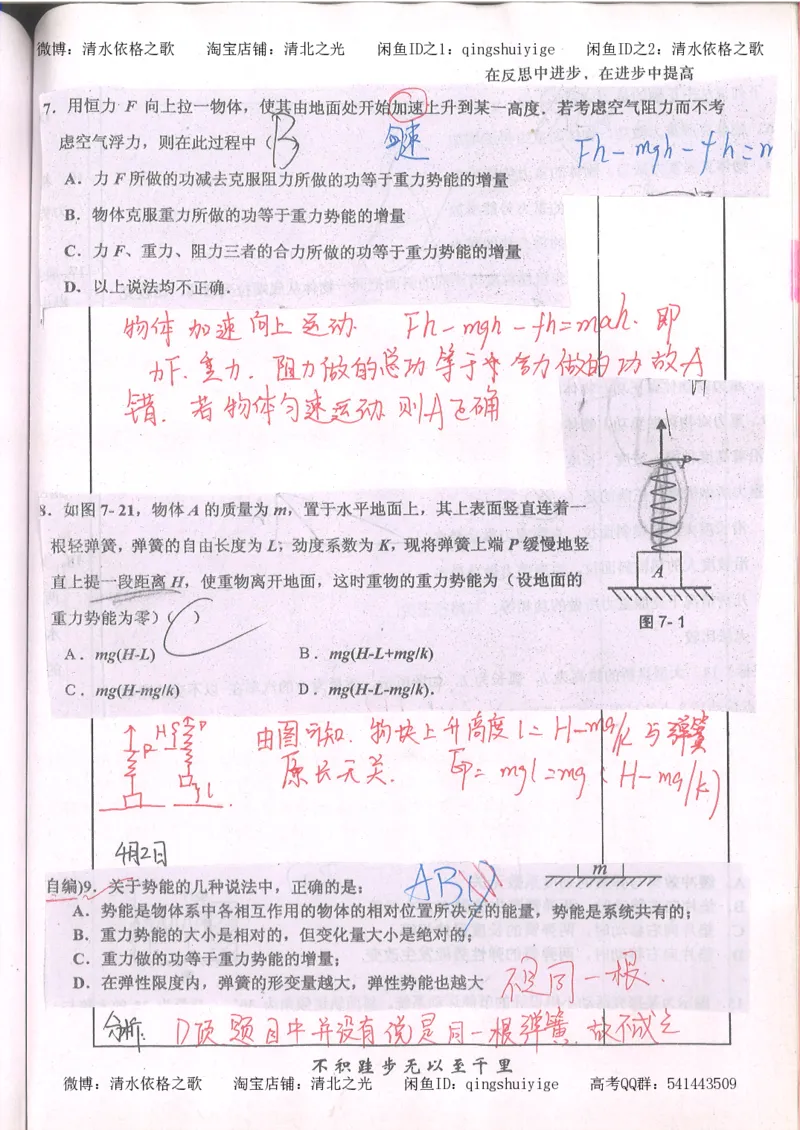 微博：清水依格之歌 淘宝店铺：清北之光 闲鱼ID之1：qingshuiyige 闲鱼ID之2：清水依格之歌
在反思中进步，在进步中提高
7．用恒力 F 向上拉一物体，使其由地面处开始加速上升到某一高度．若考虑空气阻力而不考
虑空气浮力，则在此过程中（ B ）
匀速
Fh-mgh-fh=m
A．力 F 所做的功减去克服阻力所做的功等于重力势能的增量
B．物体克服重力所做的功等于重力势能的增量
C．力 F、重力、阻力三者的合力所做的功等于重力势能的增量
D．以上说法均不正确．
物体加速向上运动． Fh-mgh-fh=mah．即
力F．重力．阻力做的总功等于合力做的功 故A
错．若物体匀速运动 则A正确
8．如图 7- 21，物体 A 的质量为 m，置于水平地面上，其上表面竖直连着一
根轻弹簧，弹簧的自由长度为 L，劲度系数为 K，现将弹簧上端 P 缓慢地竖
直上提一段距离 H，使重物离开地面，这时重物的重力势能为（设地面的
重力势能为零）（ C ）
P
A
图 7- 1
A．mg(H-L) B．mg(H-L+mg/k)
C．mg(H-mg/k) D．mg(H-L-mg/k).
P H P l
由图可知．物块上升高度 l= H-mg/k 与弹簧
原长无关． Ep= mgl=mg（H-mg/k）
4月2日
m
自编)9．关于势能的几种说法中，正确的是： AB
A．势能是物体系中各相互作用的物体的相对位置所决定的能量，势能是系统共有的；
B．重力势能的大小是相对的，但变化量大小是绝对的；
C．重力做的功等于重力势能的增量；
D．在弹性限度内，弹簧的形变量越大，弹性势能也越大
不是同一根．
分析： D项 题目中并没有说是同一根弹簧．故不成立
不积跬步无以至千里
微博：清水依格之歌 淘宝店铺：清北之光 闲鱼ID：qingshuiyige 高考QQ群：541443509